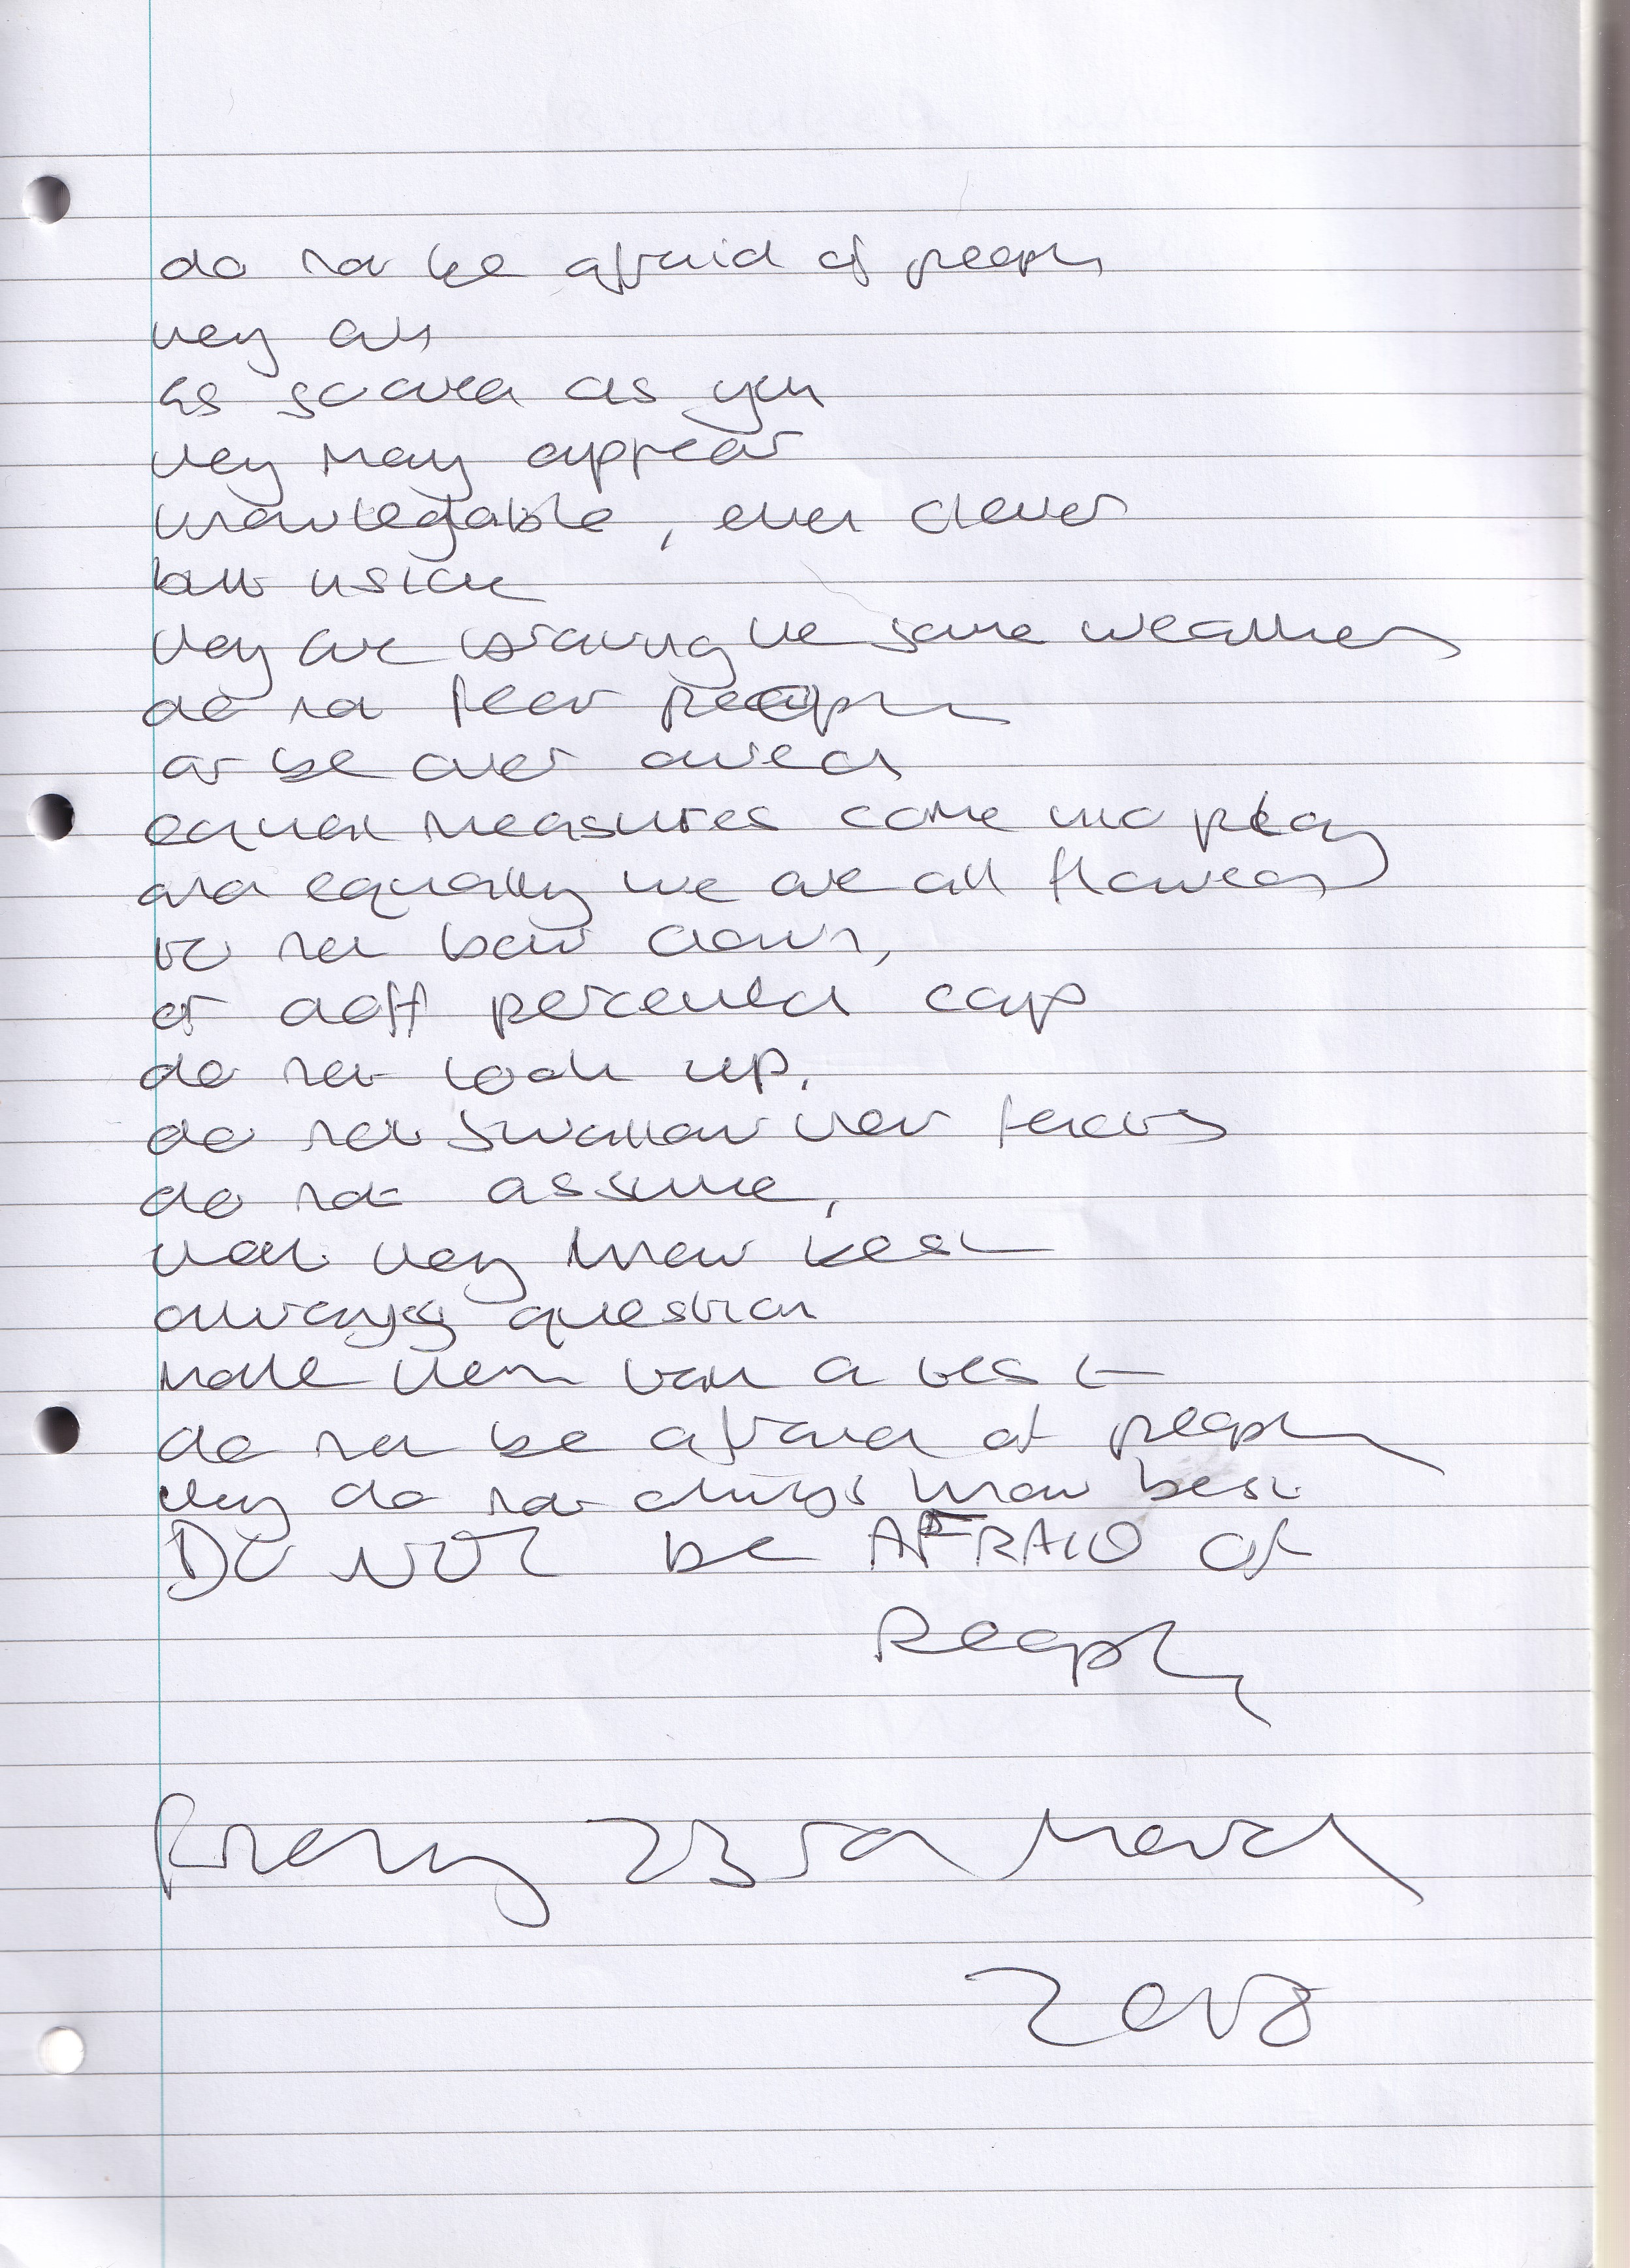 do not be afraid of people
they are
as scared as you
they may appear
knowlegable, even clever
but inside
they are braving the same weather
do not fear people
or be over awed
equal measures come into play
and equally we are all flawed
do not bow down,
or doff percented caps
do not look up,
do not swallow their fears
do not assume,
that they know best
always question
make them work a test
do not be afraid of people
they do not always know best
DO NOT be AFRAID of
People
Friday 23rd March
2018